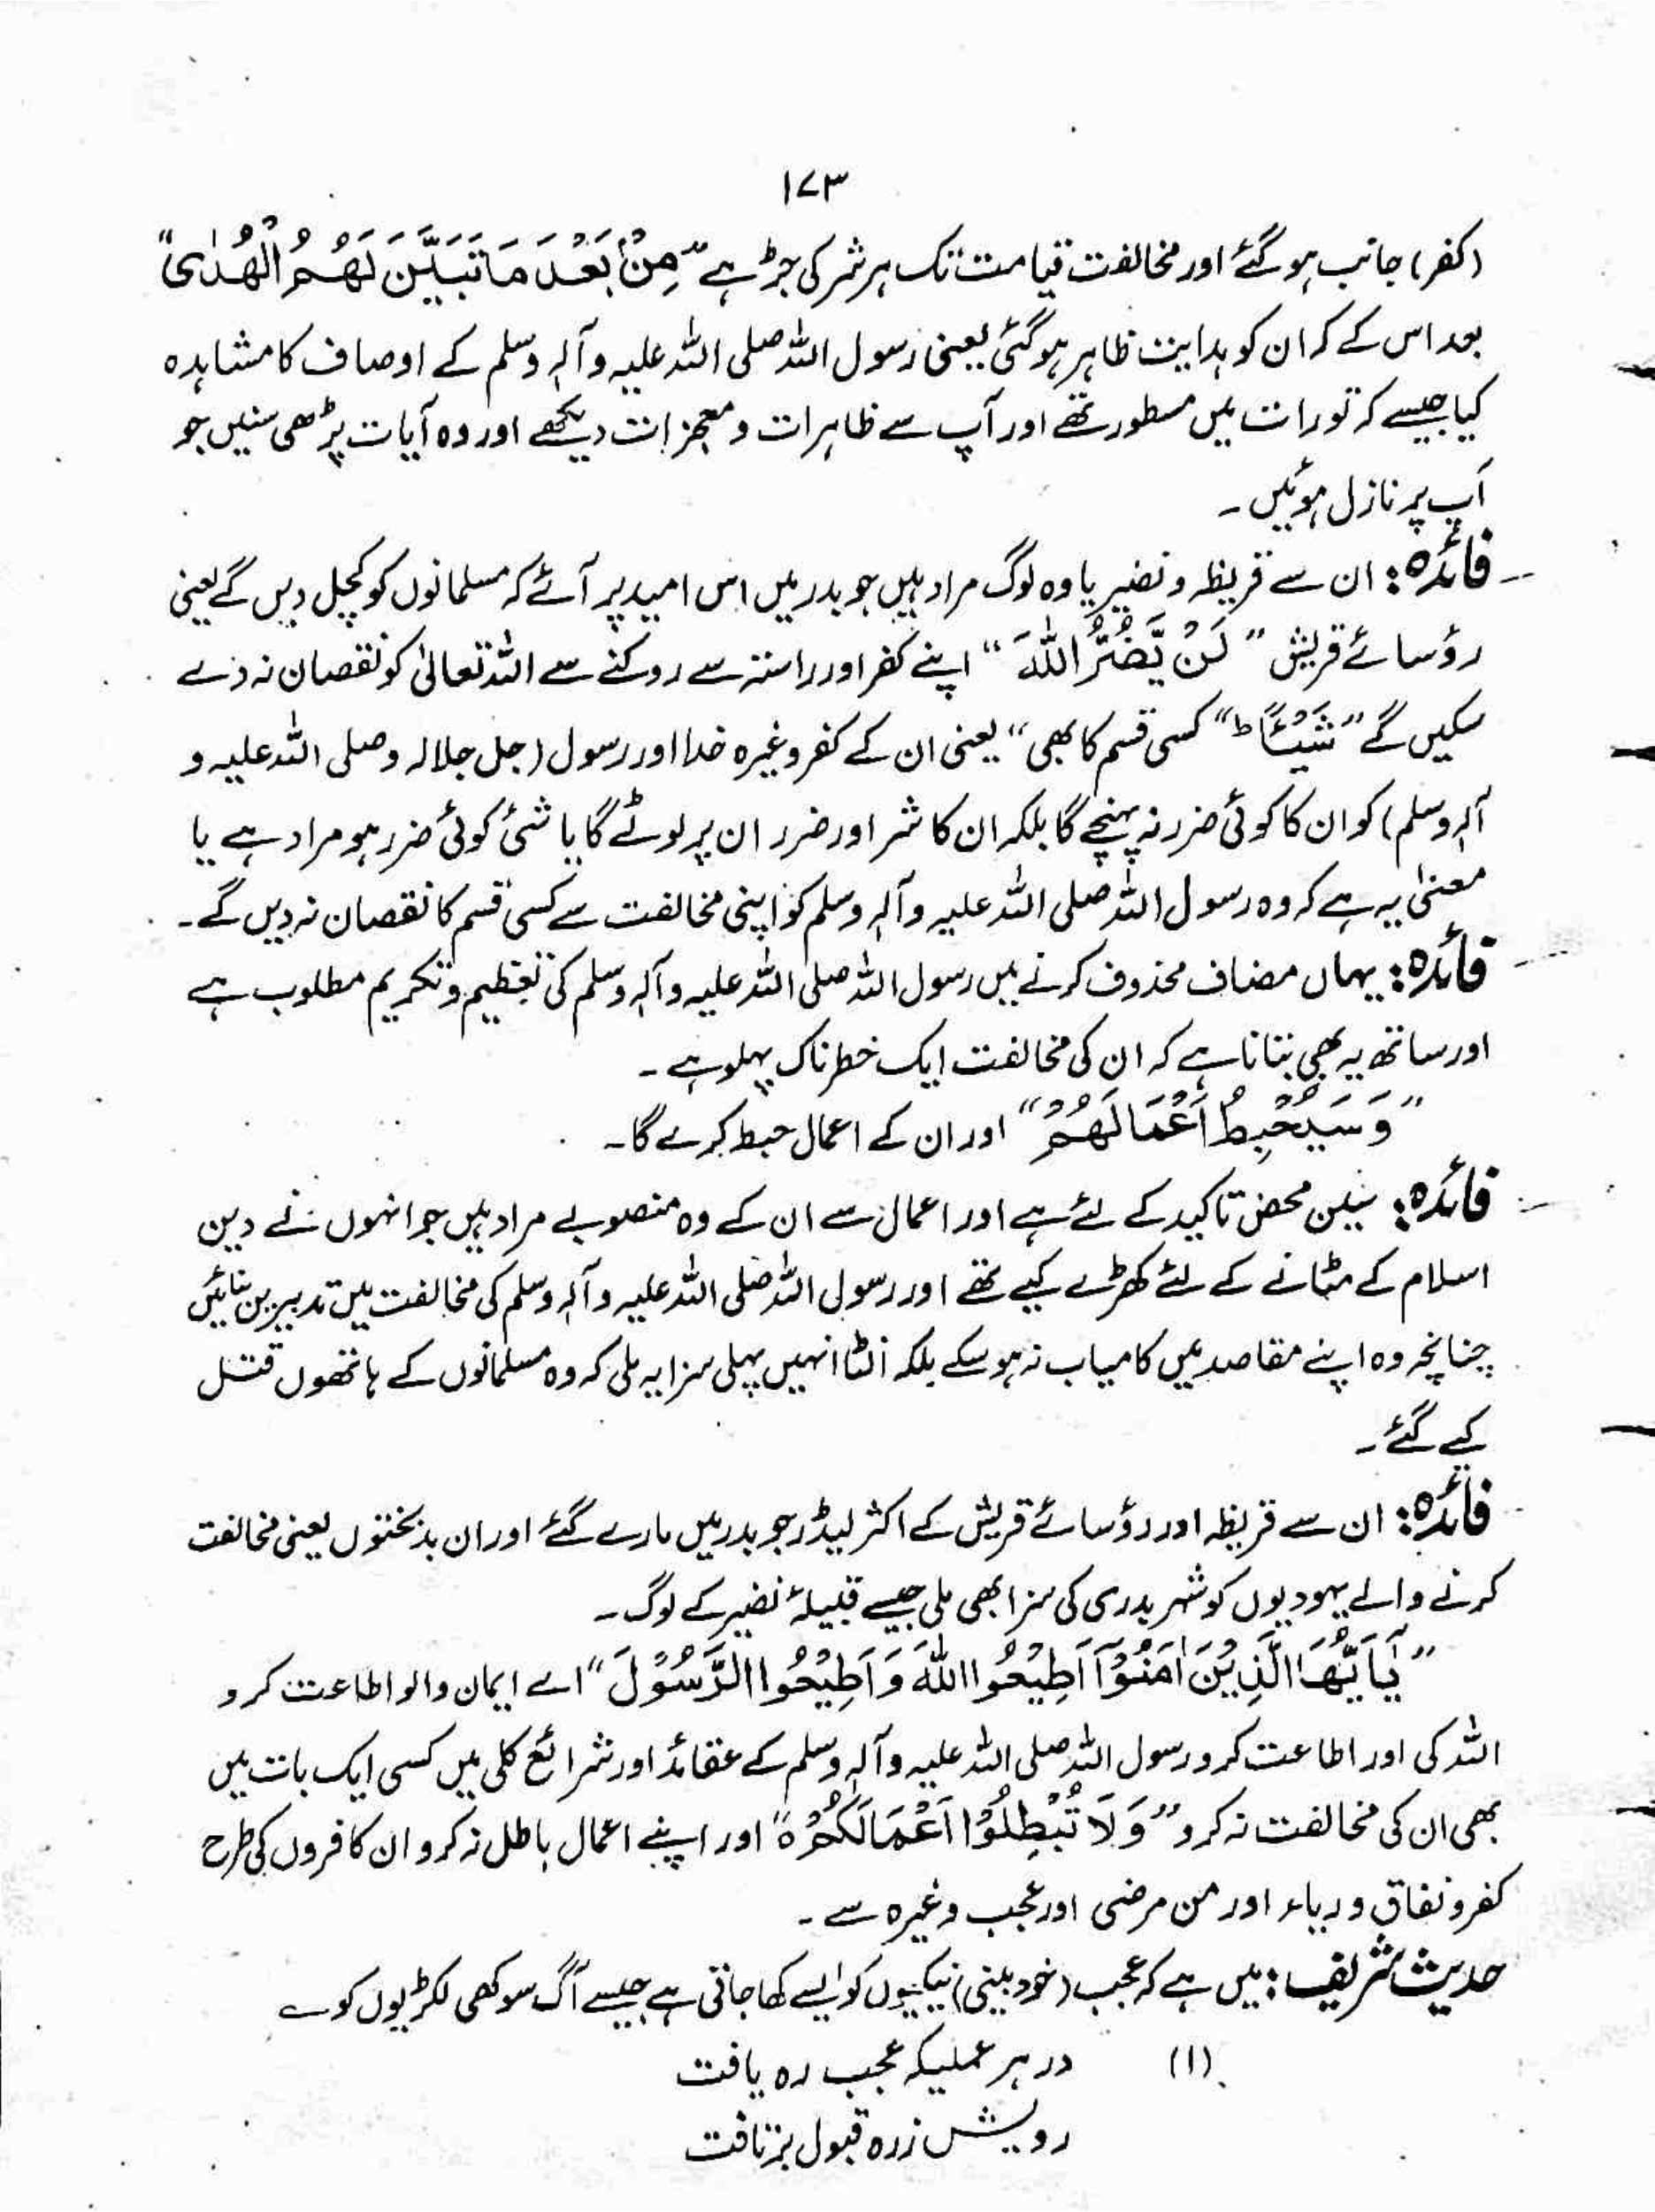 ۱۷۳
(کفر) جانب ہو گئے اور مخالفت قیامت تک ہر شر کی جڑ ہے "مِنْۢ بَعْدِ مَا تَبَيَّنَ لَهُمُ الْهُدٰىۙ"
بعد اس کے کہ ان کو ہدایت ظاہر ہو گئی یعنی رسول اللہ صلی اللہ علیہ وآلہ وسلم کے اوصاف کا مشاہدہ
کیا جیسے کہ تورات میں مسطور تھے اور آپ سے ظاہرات و معجزات دیکھے اور وہ آیات پڑھی سنیں جو
آپ پر نازل ہوئیں۔
فائدہ: ان سے قریظہ و نضیر یا وہ لوگ مراد ہیں جو بدر میں اس امید پر آئے کہ مسلمانوں کو کچل دیں گے یعنی
رؤسائے قریش "لَنْ يَّضُرُّوا اللّٰهَ" اپنے کفر اور راستہ سے روکنے سے اللہ تعالیٰ کو نقصان نہ دے
سکیں گے "شَيْـًٔاؕ" کسی قسم کا بھی" یعنی ان کے کفر وغیرہ خدا اور رسول (جل جلالہ وصلی اللہ علیہ و
آلہ وسلم) کو ان کا کوئی ضرر نہ پہنچے گا بلکہ ان کا شر اور ضرر ان پر لوٹے گا یا شئ کوئی ضرر ہو مراد ہے یا
معنیٰ یہ ہے کہ وہ رسول اللہ صلی اللہ علیہ وآلہ وسلم کو اپنی مخالفت سے کسی قسم کا نقصان نہ دیں گے۔
فائدہ: یہاں مضاف محذوف کرنے میں رسول اللہ صلی اللہ علیہ وآلہ وسلم کی تعظیم و تکریم مطلوب ہے
اور ساتھ یہ بھی بتانا ہے کہ ان کی مخالفت ایک خطرناک پہلو ہے۔
"وَ سَيُحْبِطُ اَعْمَالَهُمْ" اور ان کے اعمال حبط کرے گا۔
فائدہ: سین محض تاکید کے لئے ہے اور اعمال سے ان کے وہ منصوبے مراد ہیں جو انہوں نے دین
اسلام کے مٹانے کے لئے کھڑے کیے تھے اور رسول اللہ صلی اللہ علیہ وآلہ وسلم کی مخالفت میں تدبیریں بنائیں
چنانچہ وہ اپنے مقاصد میں کامیاب نہ ہو سکے بلکہ الٹا انہیں پہلی سزا یہ ملی کہ وہ مسلمانوں کے ہاتھوں قتل
کیے گئے۔
فائدہ: ان سے قریظہ اور رؤسائے قریش کے اکثر لیڈر جو بدر میں مارے گئے اور ان بدبختوں یعنی مخالفت
کرنے والے یہودیوں کو شہر بدری کی سزا بھی ملی جیسے قبیلۂ نضیر کے لوگ۔
"يٰۤاَيُّهَا الَّذِيْنَ اٰمَنُوْۤا اَطِيْعُوا اللّٰهَ وَ اَطِيْعُوا الرَّسُوْلَ" اے ایمان والو اطاعت کرو
اللہ کی اور اطاعت کرو رسول اللہ صلی اللہ علیہ وآلہ وسلم کے عقائد اور شرائع کلی میں کسی ایک بات میں
بھی ان کی مخالفت نہ کرو "وَ لَا تُبْطِلُوْۤا اَعْمَالَكُمْ ہ" اور اپنے اعمال باطل نہ کرو ان کافروں کی طرح
کفر و نفاق و ریاء اور من مرضی اور عجب وغیرہ سے۔
حدیث شریف: میں ہے کہ عجب (خود بینی) نیکیوں کو ایسے کھا جاتی ہے جیسے آگ سوکھی لکڑیوں کو ے
(۱) در ہر عملیکہ عجب رہ یافت
رویش زرہ قبول بر تافت